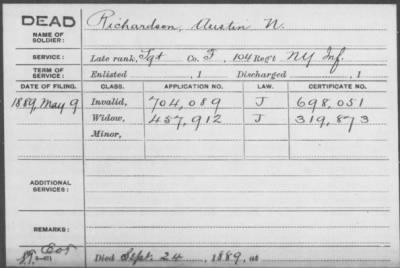 DEAD
NAME OF SOLDIER: Richardson, Austin N.
SERVICE: Late rank, Sgt Co. F, 104 Reg't NY Inf.
TERM OF SERVICE: Enlisted , 1 Discharged , 1
DATE OF FILING. CLASS. APPLICATION NO. LAW. CERTIFICATE NO.
1889, May 9 Invalid, 704,089 J 698,051
Widow, 457,912 J 319,873
Minor,
ADDITIONAL SERVICES:
REMARKS:
Died Sept. 24, 1889, at